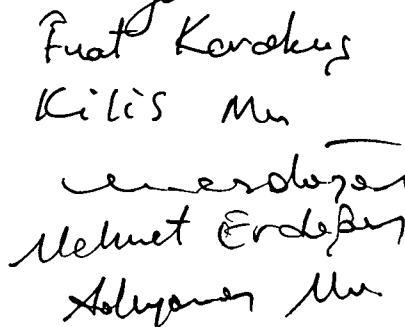 Fuat Karakuş
Kilis Mv
Mehmet Erdoğan
Adıyaman Mv